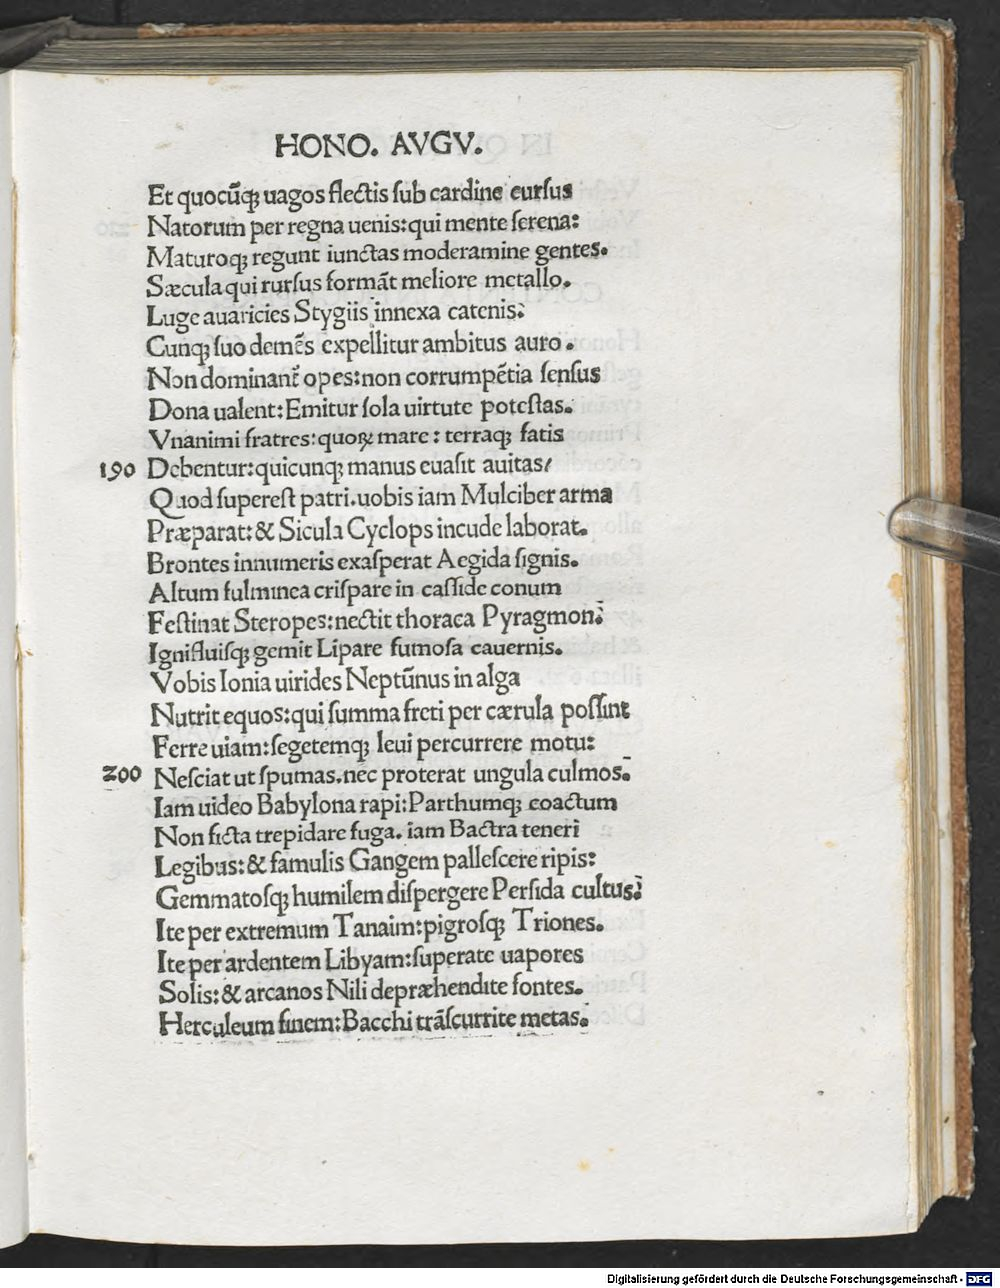 HONO. AVGV.
Et quocũqꝫ uagos flectis ſub cardine curſus
Natorum per regna uenis:qui mente ſerena:
Maturoqꝫ regunt iunctas moderamine gentes.
Sæcula qui rurſus formãt meliore metallo.
Luge auaricies Stygiis innexa catenis:
Cunqꝫ ſuo demẽs expellitur ambitus auro.
Non dominant̃ opes:non corrumpẽtia ſenſus
Dona ualent:Emitur ſola uirtute poteſtas.
Vnanimi fratres:quoꝝ mare: terraqꝫ fatis
190 Debentur:quicunqꝫ manus euaſit auitas/
Quod ſupereſt patri.uobis iam Mulciber arma
Præparat:& Sicula Cyclops incude laborat.
Brontes innumeris exaſperat Aegida ſignis.
Altum fulminea criſpare in caſſide conum
Feſtinat Steropes:nectit thoraca Pyragmon:
Ignifluiſqꝫ gemit Lipare fumoſa cauernis.
Vobis Ionia uirides Neptũnus in alga
Nutrit equos:qui ſumma freti per cærula poſſint
Ferre uiam:ſegetemqꝫ leui percurrere motu:
200 Neſciat ut ſpumas.nec proterat ungula culmos.
Iam uideo Babylona rapi:Parthumqꝫ coactum
Non ficta trepidare fuga. iam Bactra teneri
Legibus:& famulis Gangem palleſcere ripis:
Gemmatoſqꝫ humilem diſpergere Perſida cultus:
Ite per extremum Tanaim:pigroſqꝫ Triones.
Ite per ardentem Libyam:ſuperate uapores
Solis:& arcanos Nili depræhendite fontes.
Herculeum finem:Bacchi trãſcurrite metas.
Digitalisierung gefördert durch die Deutsche Forschungsgemeinschaft - DFG